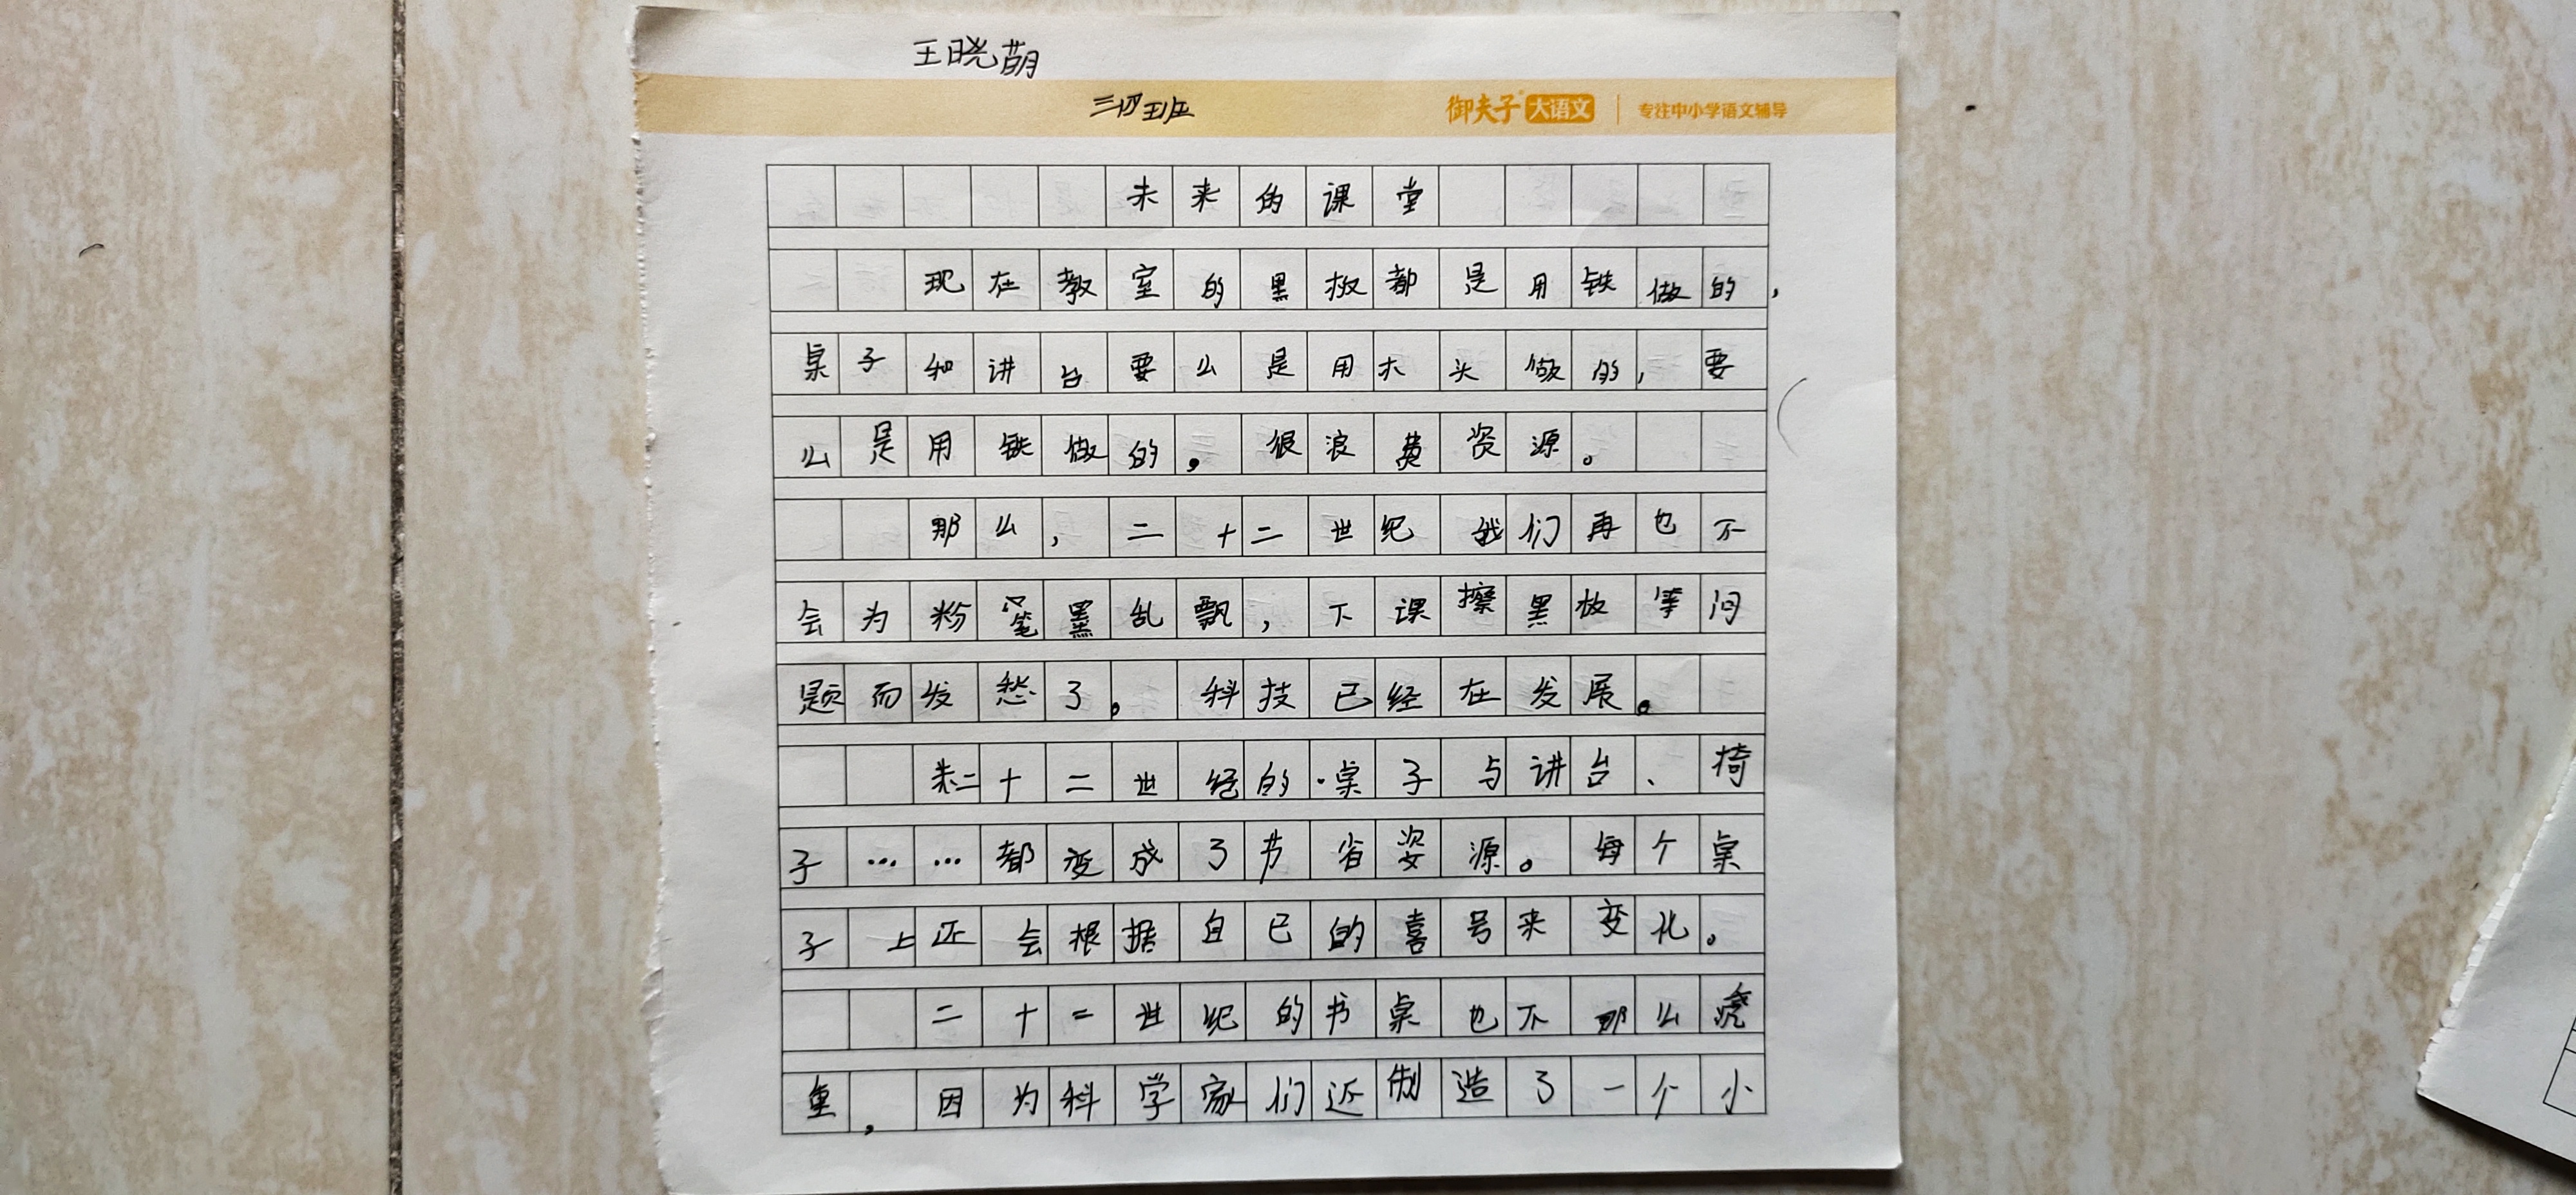 王晓萌
三四班
御夫子 大语文 专注中小学语文辅导
未来的课堂
现在教室的黑板都是用铁做的，
桌子和讲台要么是用木头做的，要
么是用铁做的，很浪费资源。
那么，二十二世纪我们再也不
会为粉笔墨乱飘，下课擦黑板等问
题而发愁了。科技已经在发展。
二十二世纪的桌子与讲台、椅
子……都变成了节省资源。每个桌
子上还会根据自己的喜号来变化。
二十二世纪的书桌也不那么
重，因为科学家们还制造了一个小